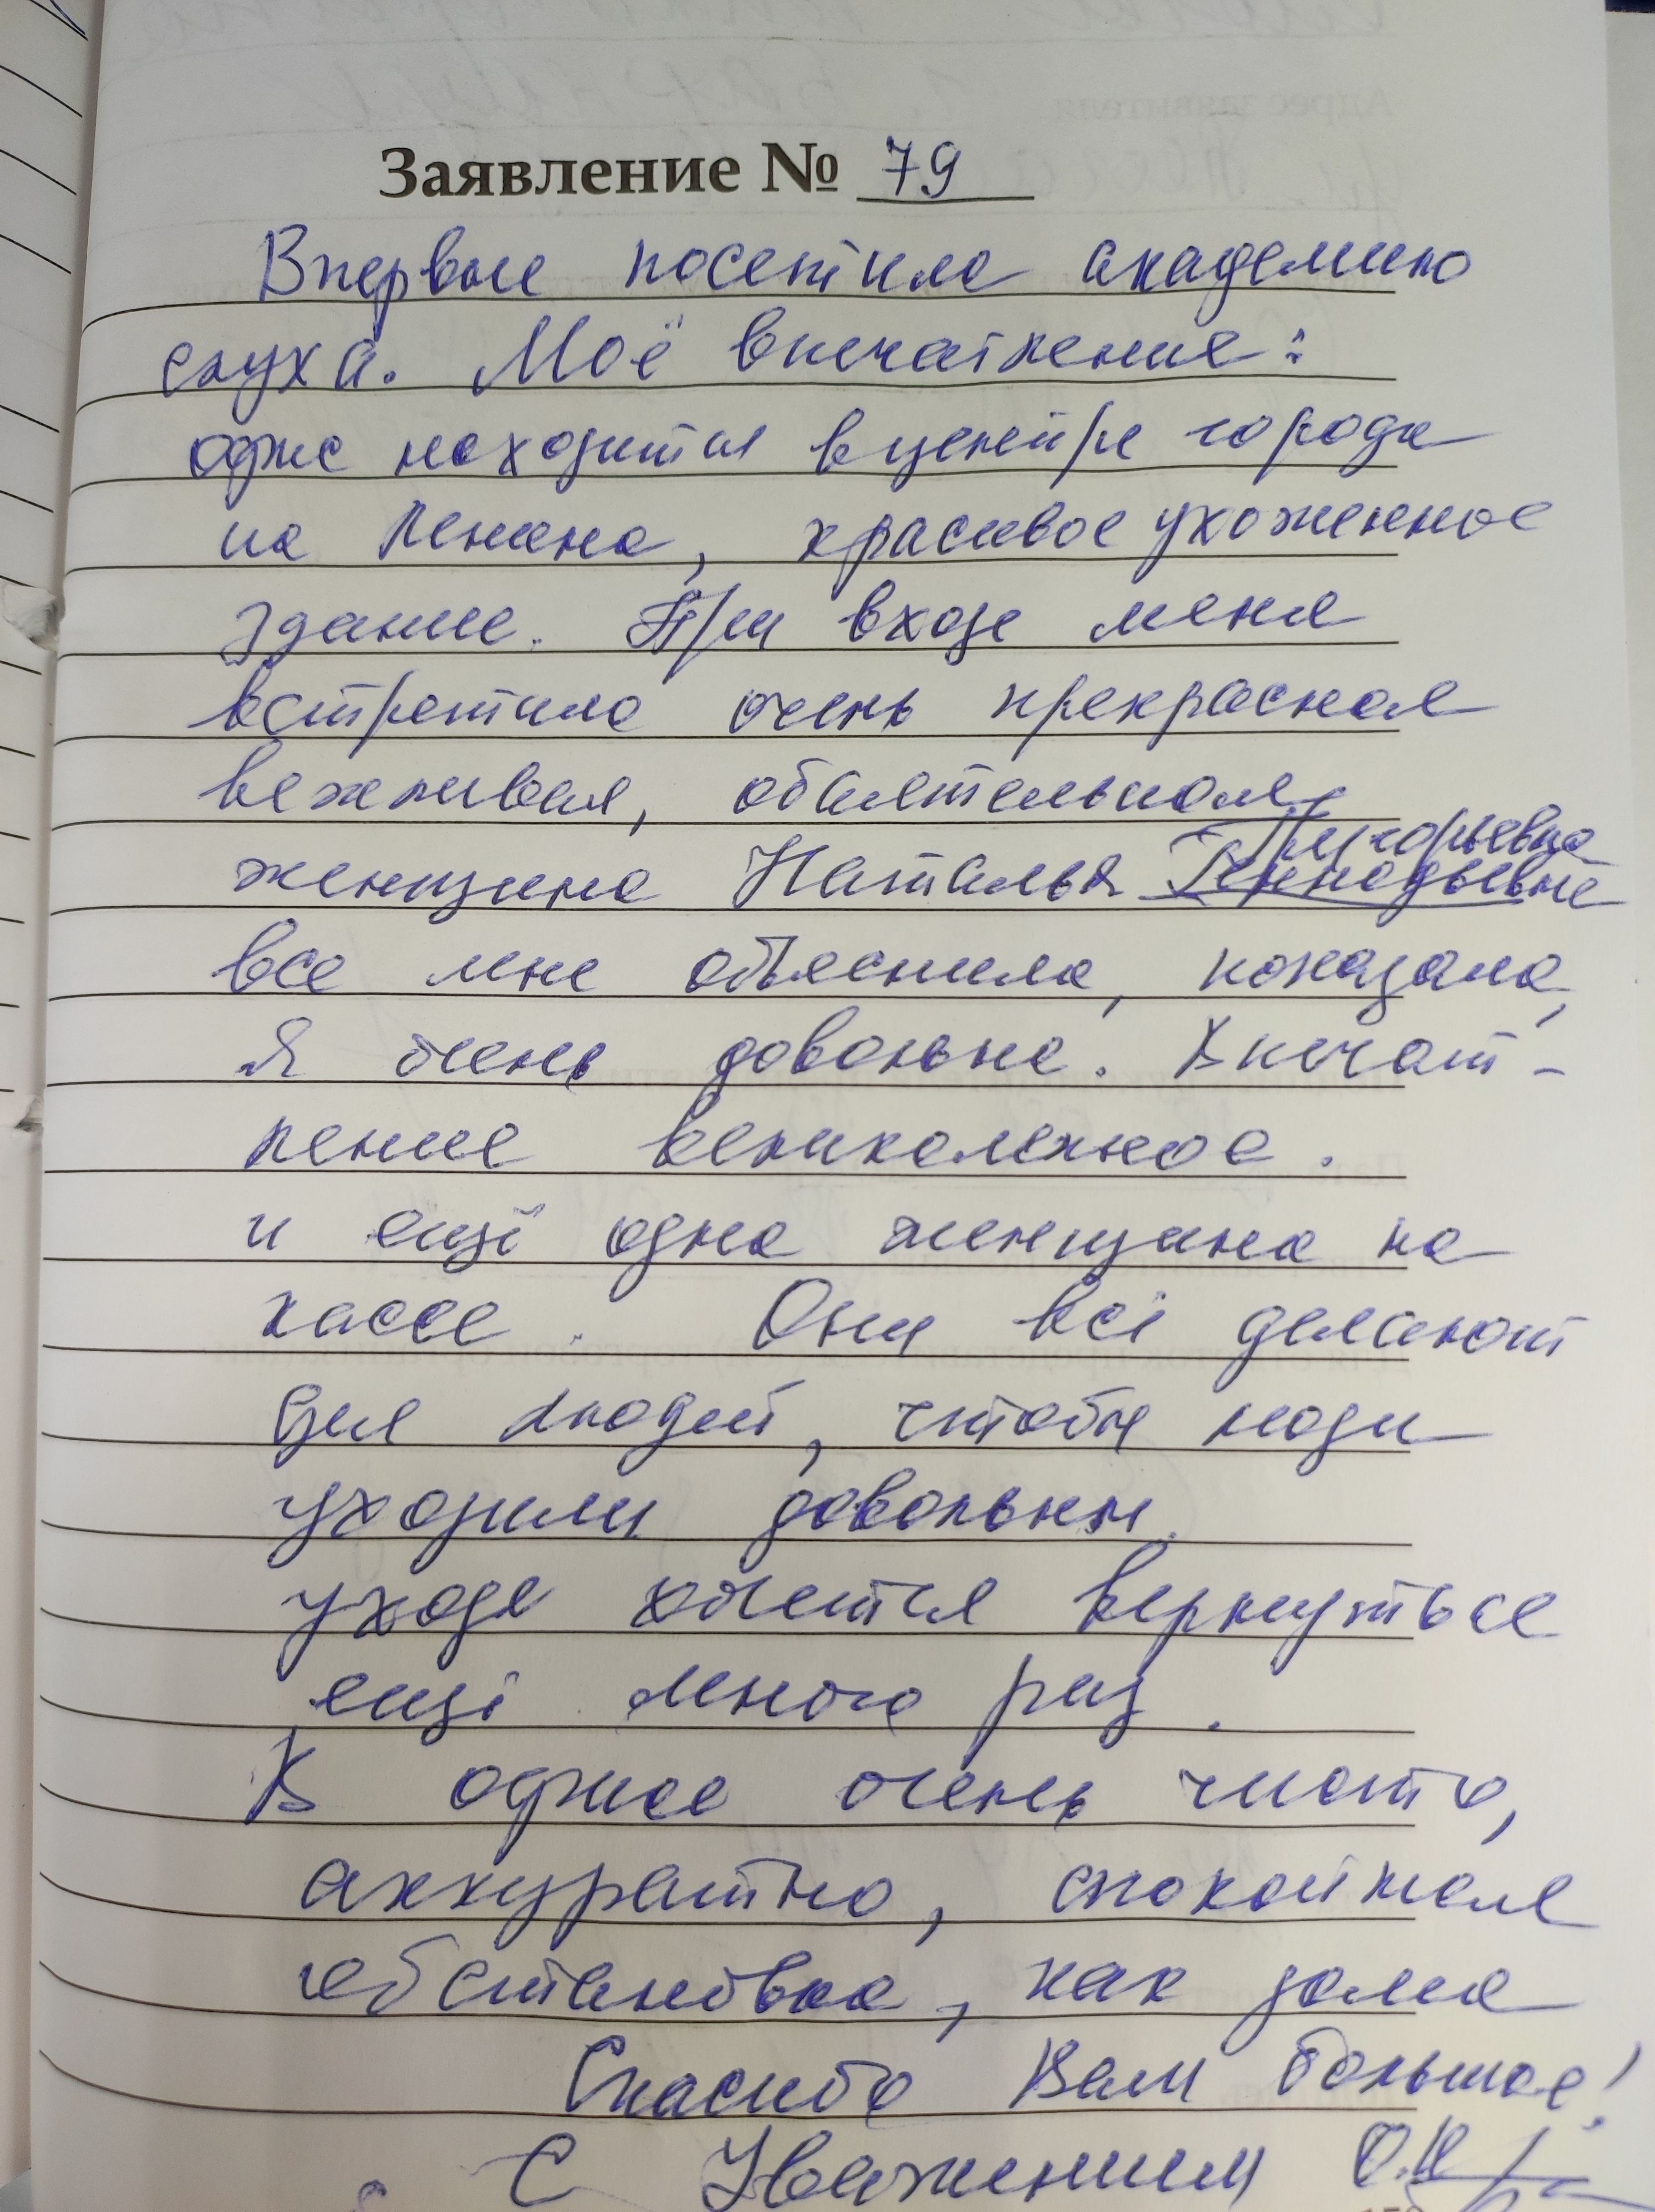 Заявление № 79
Впервые посетила академию
слуха. Моё впечатление:
офис находится в центре города
на Ленина, красивое ухоженное
здание. При входе меня
встретила очень прекрасная
вежливая, обаятельная
Григорьевна
женщина Наталья Геннадьевна
все мне объяснила, показала,
Я очень довольна. Впечат-
ление великолепное.
и ещё одна женщина на
кассе. Они всё делают
для людей, чтобы люди
уходили довольны.
уходя хочется вернуться
ещё много раз.
В офисе очень чисто,
аккуратно, спокойная
обстановка, как дома
Спасибо Вам большое!
С Уважением